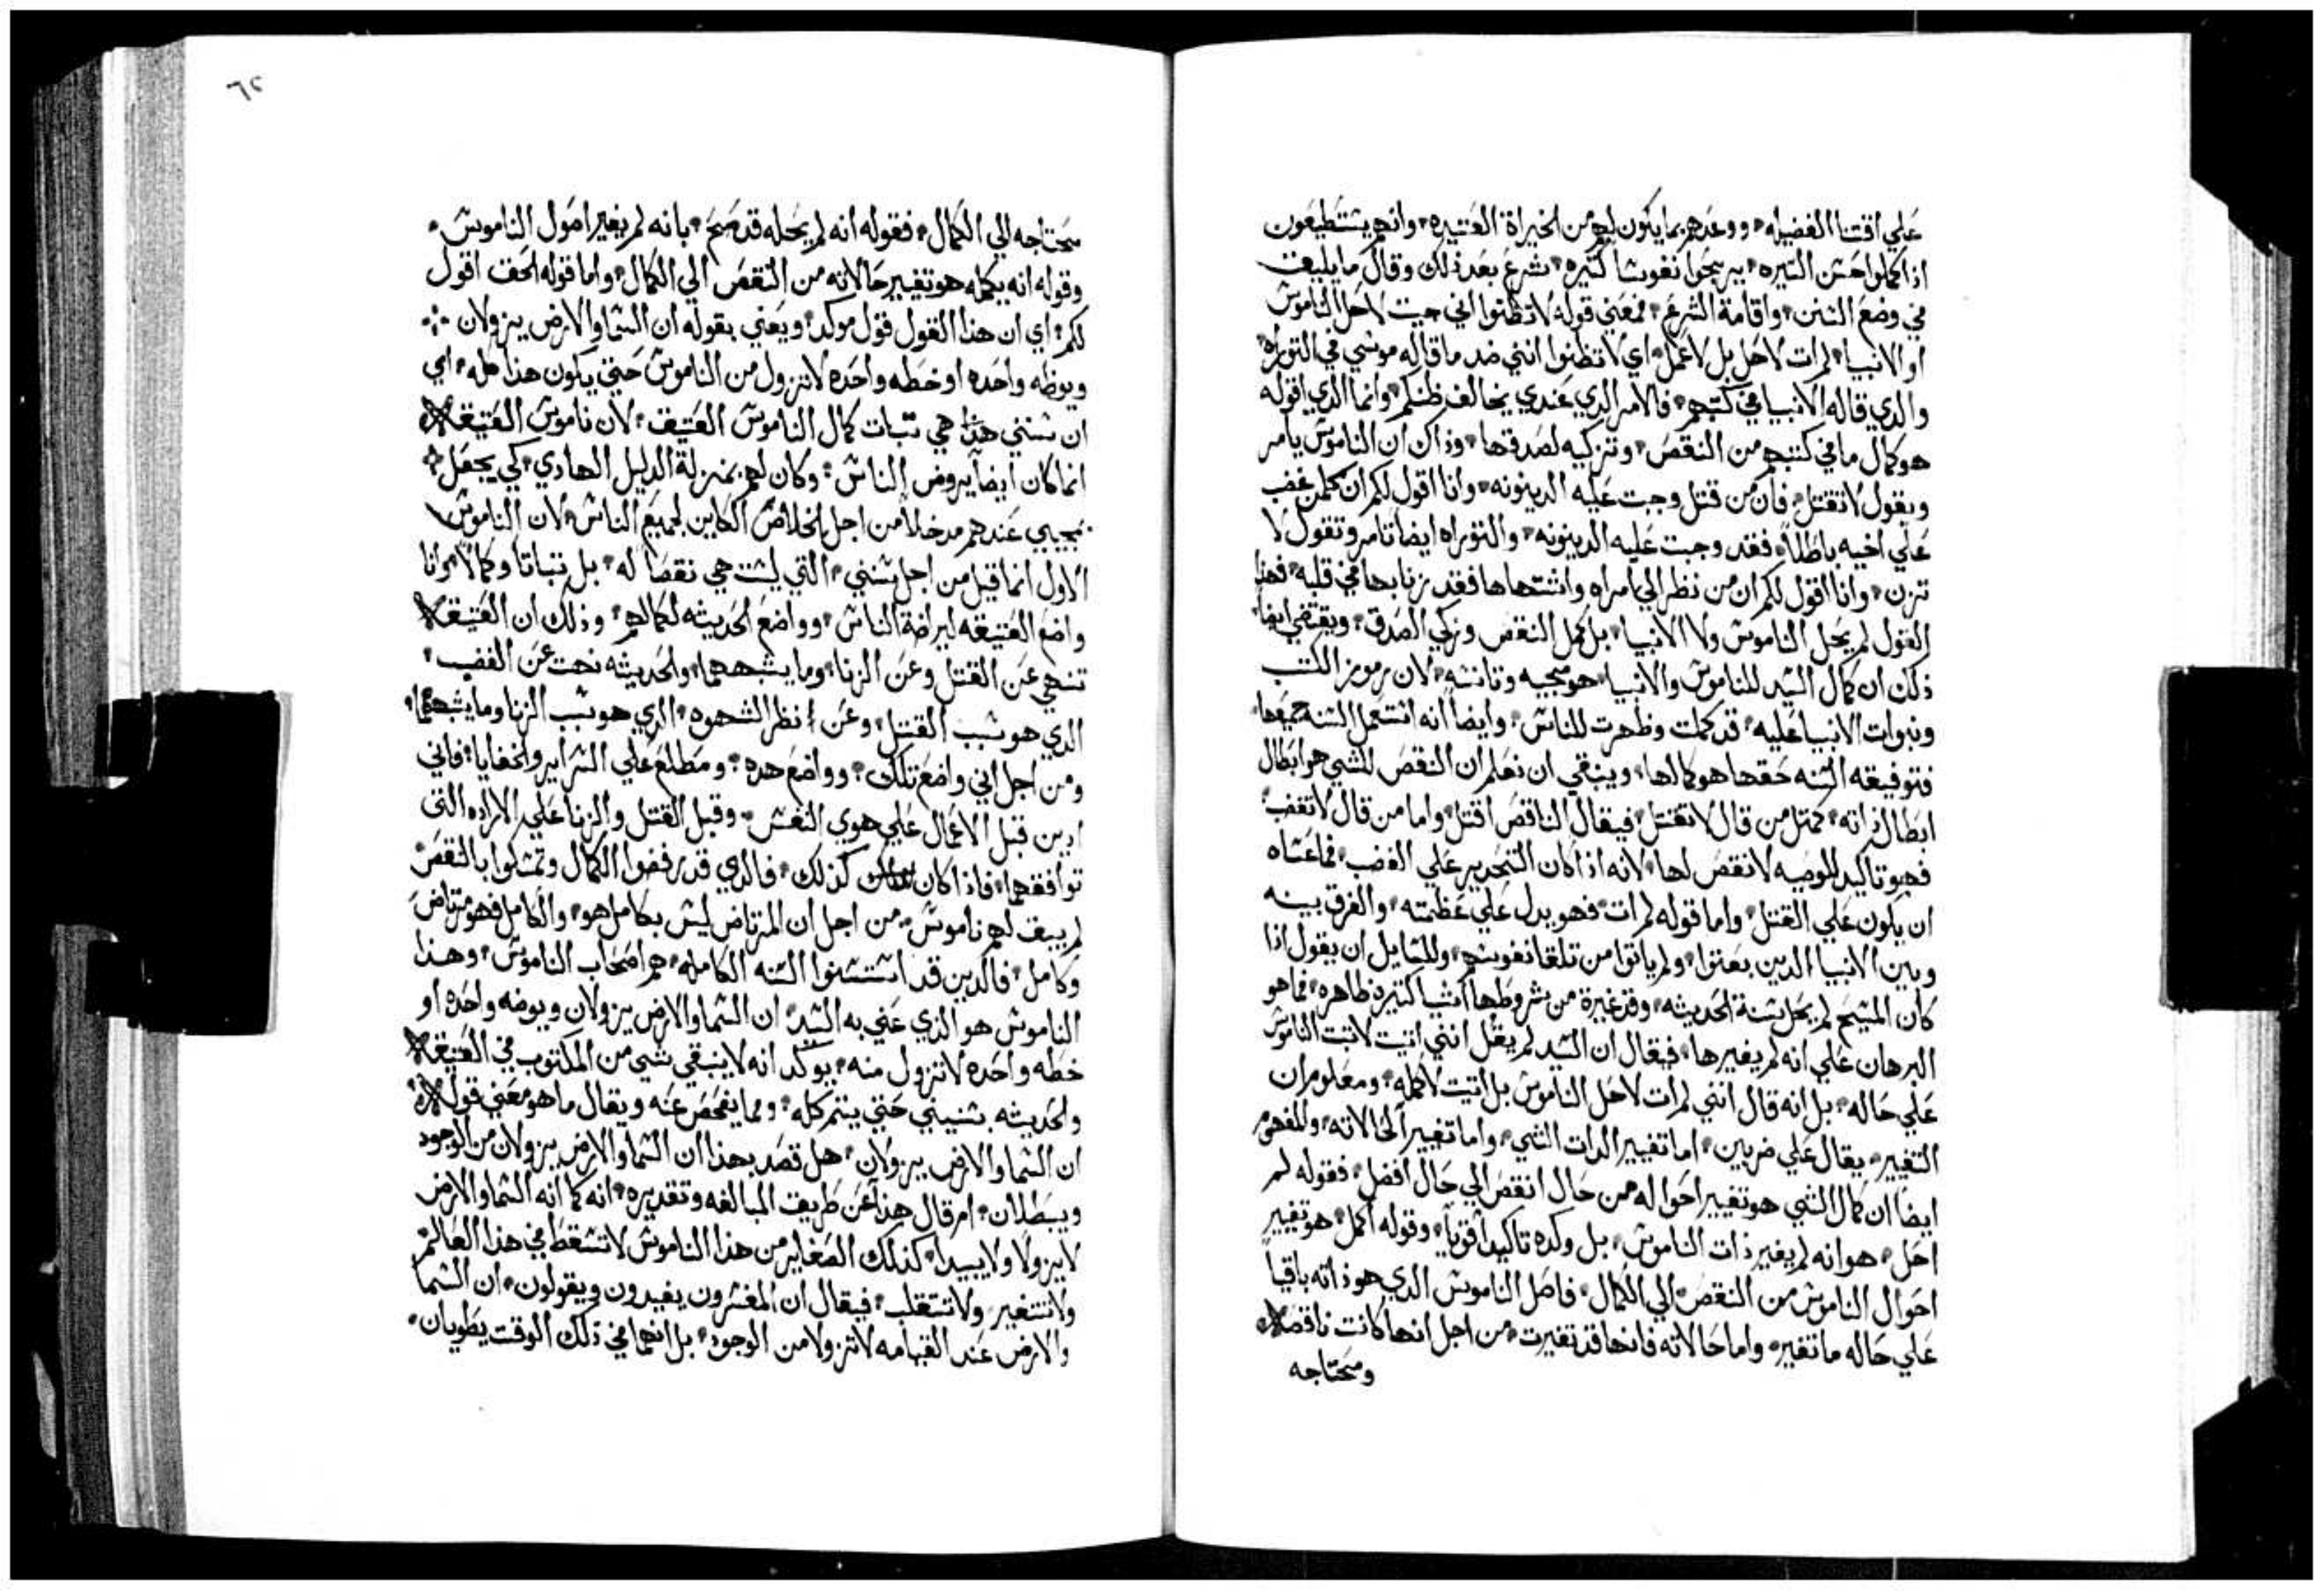 علي اقتنا الفضيله، ووعدهم بما يكون لهم من الخيراة العتيده، وانهم يشتطيعون
اذا كملوا حشن الشيره، يربحوا نفوشا كتيره، شرع بعد ذلك وقال ما يليق
في وضع الشنن، واقامة الشرع، فمعني قوله لا تظنوا اني جيت لاحل الناموش
او الانبيا، لم ات لاحل بل لاكمل، اي لا تظنوا انني ضد ما قاله موشي في التوراه
والدي قاله الانبيا في كتبهم، فالامر الدي عندي يخالف ظنكم، وانما الدي اقوله
هو كمال ما في كتبهم من النقص، وتزكيه لصدقها، وذاك ان الناموش يامر
ويقول لا تقتل، فان من قتل وجبت عليه الدينونه، وانا اقول لكم ان كلمن غضب
علي اخيه باطلاً، فقد وجبت عليه الدينونه، والتوراه ايضاً تامر وتقول لا
تزن، وانا اقول لكم ان من نظر الي امراه واشتهاها فقد زنا بها في قلبه، فهذا
القول لم يحل الناموش ولا الانبيا، بل كمل النقص وزكي الصدق، ويقتضي ايضاً
ذلك ان كمال الشيد للناموش والانبيا، هو مجيه وتانشه، لان رموز الكتب
ونبوات الانبيا عليه، قد كملت وظهرت للناش، وايضاً انه اشتعمل الشنه جميعها،
فتوفيقه الشنه حقها هو كمالها، وينبقي ان نعلم ان النقص للشي هو ابطال
ابطال ذاته، كمتل من قال لا تقتل، فيقال الناقص اقتل، واما من قال لا تغضب
فهو تاكيد للوصيه لا نقص لها، لانه اذا كان التحدير علي الغضب، فما عشاه
ان يكون علي القتل، واما قوله لم ات، فهو يدل علي عظمته، والفرق بينه
وبين الانبيا الدين بعتوا، ولم ياتوا من تلقا نفوشهم، وللشايل ان يقول اذا
كان المشيح لم يحل بشنة الحديثه، وقد غيرة من شروطها اشيا كتيره ظاهره، فما هو
البرهان علي انه لم يغيرها، فيقال ان الشيد لم يقل انني اتيت لاتبت الناموش
علي حاله، بل انه قال انني لم ات لاحل الناموش بل اتيت لاكمله، ومعلوم ان
التغيير، يقال علي ضربين، اما تغيير الدات الشي، واما تغيير الحالاته، والمفهوم
ايضاً ان كمال الشي هو تغيير احواله من حال انقص الي حال افضل، فقوله لم
احل، هو انه لم يغير ذات الناموش، بل وكده تاكيداً قوياً، وقوله اكمل، هو تغيير
احوال الناموش من النقص الي الكمال، فاصل الناموش الدي هو ذاته باقياً
علي حاله ما تغير، واما حالاته فانها قد تغيرت، من اجل انها كانت ناقصه
ومحتاجه
٦٢
محتاجه الي الكمال، فقوله انه لم يحله قد صح، بانه لم يغير اصول الناموش،
وقوله انه يكمله هو تغيير حالاته من النقص الي الكمال، واما قوله الحق اقول
لكم، اي ان هذا القول قول موكد، ويعني بقوله ان الشما والارض يزولان
ويوظه واحده او خطه واحده لا تزول من الناموش حتي يكون هذا كله، اي
ان شنتي هذا هي تبات كمال الناموش العتيق، لان ناموش العتيقه
انما كان ايضاً يروض الناش، وكان لهم بمنزلة الدليل الهادي، كي يجعل
مجيي عندهم مدخلاً من اجل الخلاص الكاين لجميع الناش، لان الناموش
الاول انما قيل من اجل شنتي، التي ليشت هي نقصاً له، بل تباتا وكمالاً، وانا
واضع العتيقه لرياضة الناش، وواضع الحديثه لكمالهم، وذلك ان العتيقه
تنهي عن القتل وعن الزنا، وما يشبههما، والحديثه نهت عن الغضب،
الدي هو شبب القتل، وعن نظر الشهوه، الدي هو شبب الزنا وما يشبههما،
ومن اجل اني واضع تلك، وواضع هده، ومطلع علي الشراير والخفايا، فاني
ادين قبل الاعمال علي هوي النفش، وقبل القتل والزنا علي الاراده التي
توافقهما، فاذا كان كذلك، فالدي قد رفضوا الكمال وتمشكوا بالنقص
لم يبق لهم ناموش، من اجل ان المرتاض ليش بكامل هو، والكامل فهو مرتاض
وكامل، فالدين قد اشتشنوا الشنه الكامله، هم اصحاب الناموش، وهذا
الناموش هو الدي عني به الشيد، ان الشما والارض يزولان ويوضه واحده او
خطه واحده لا تزول منه، يوكد انه لا ينبقي شي من المكتوب في العتيقه
والحديثه بشنيني حتي يتم كله، ومما يفحص عنه ويقال ما هو معني قوله
ان الشما والارض يزولان، هل قصد بهذا ان الشما والارض يزولان من الوجود
ويبطلان، ام قال هذا عن طريق المبالغه وتقديره، انه كما انه الشما والارض
لا يزولا ولا يبيدا، كذلك الصغاير من هذا الناموش لا تشقط في هذا العالم
ولا تتغير ولا تتقلب، فيقال ان المفشرون يفيدون ويقولون، ان الشما
والارض عند القيامه لا تزولا من الوجود، بل انهما في ذلك الوقت يطويان،